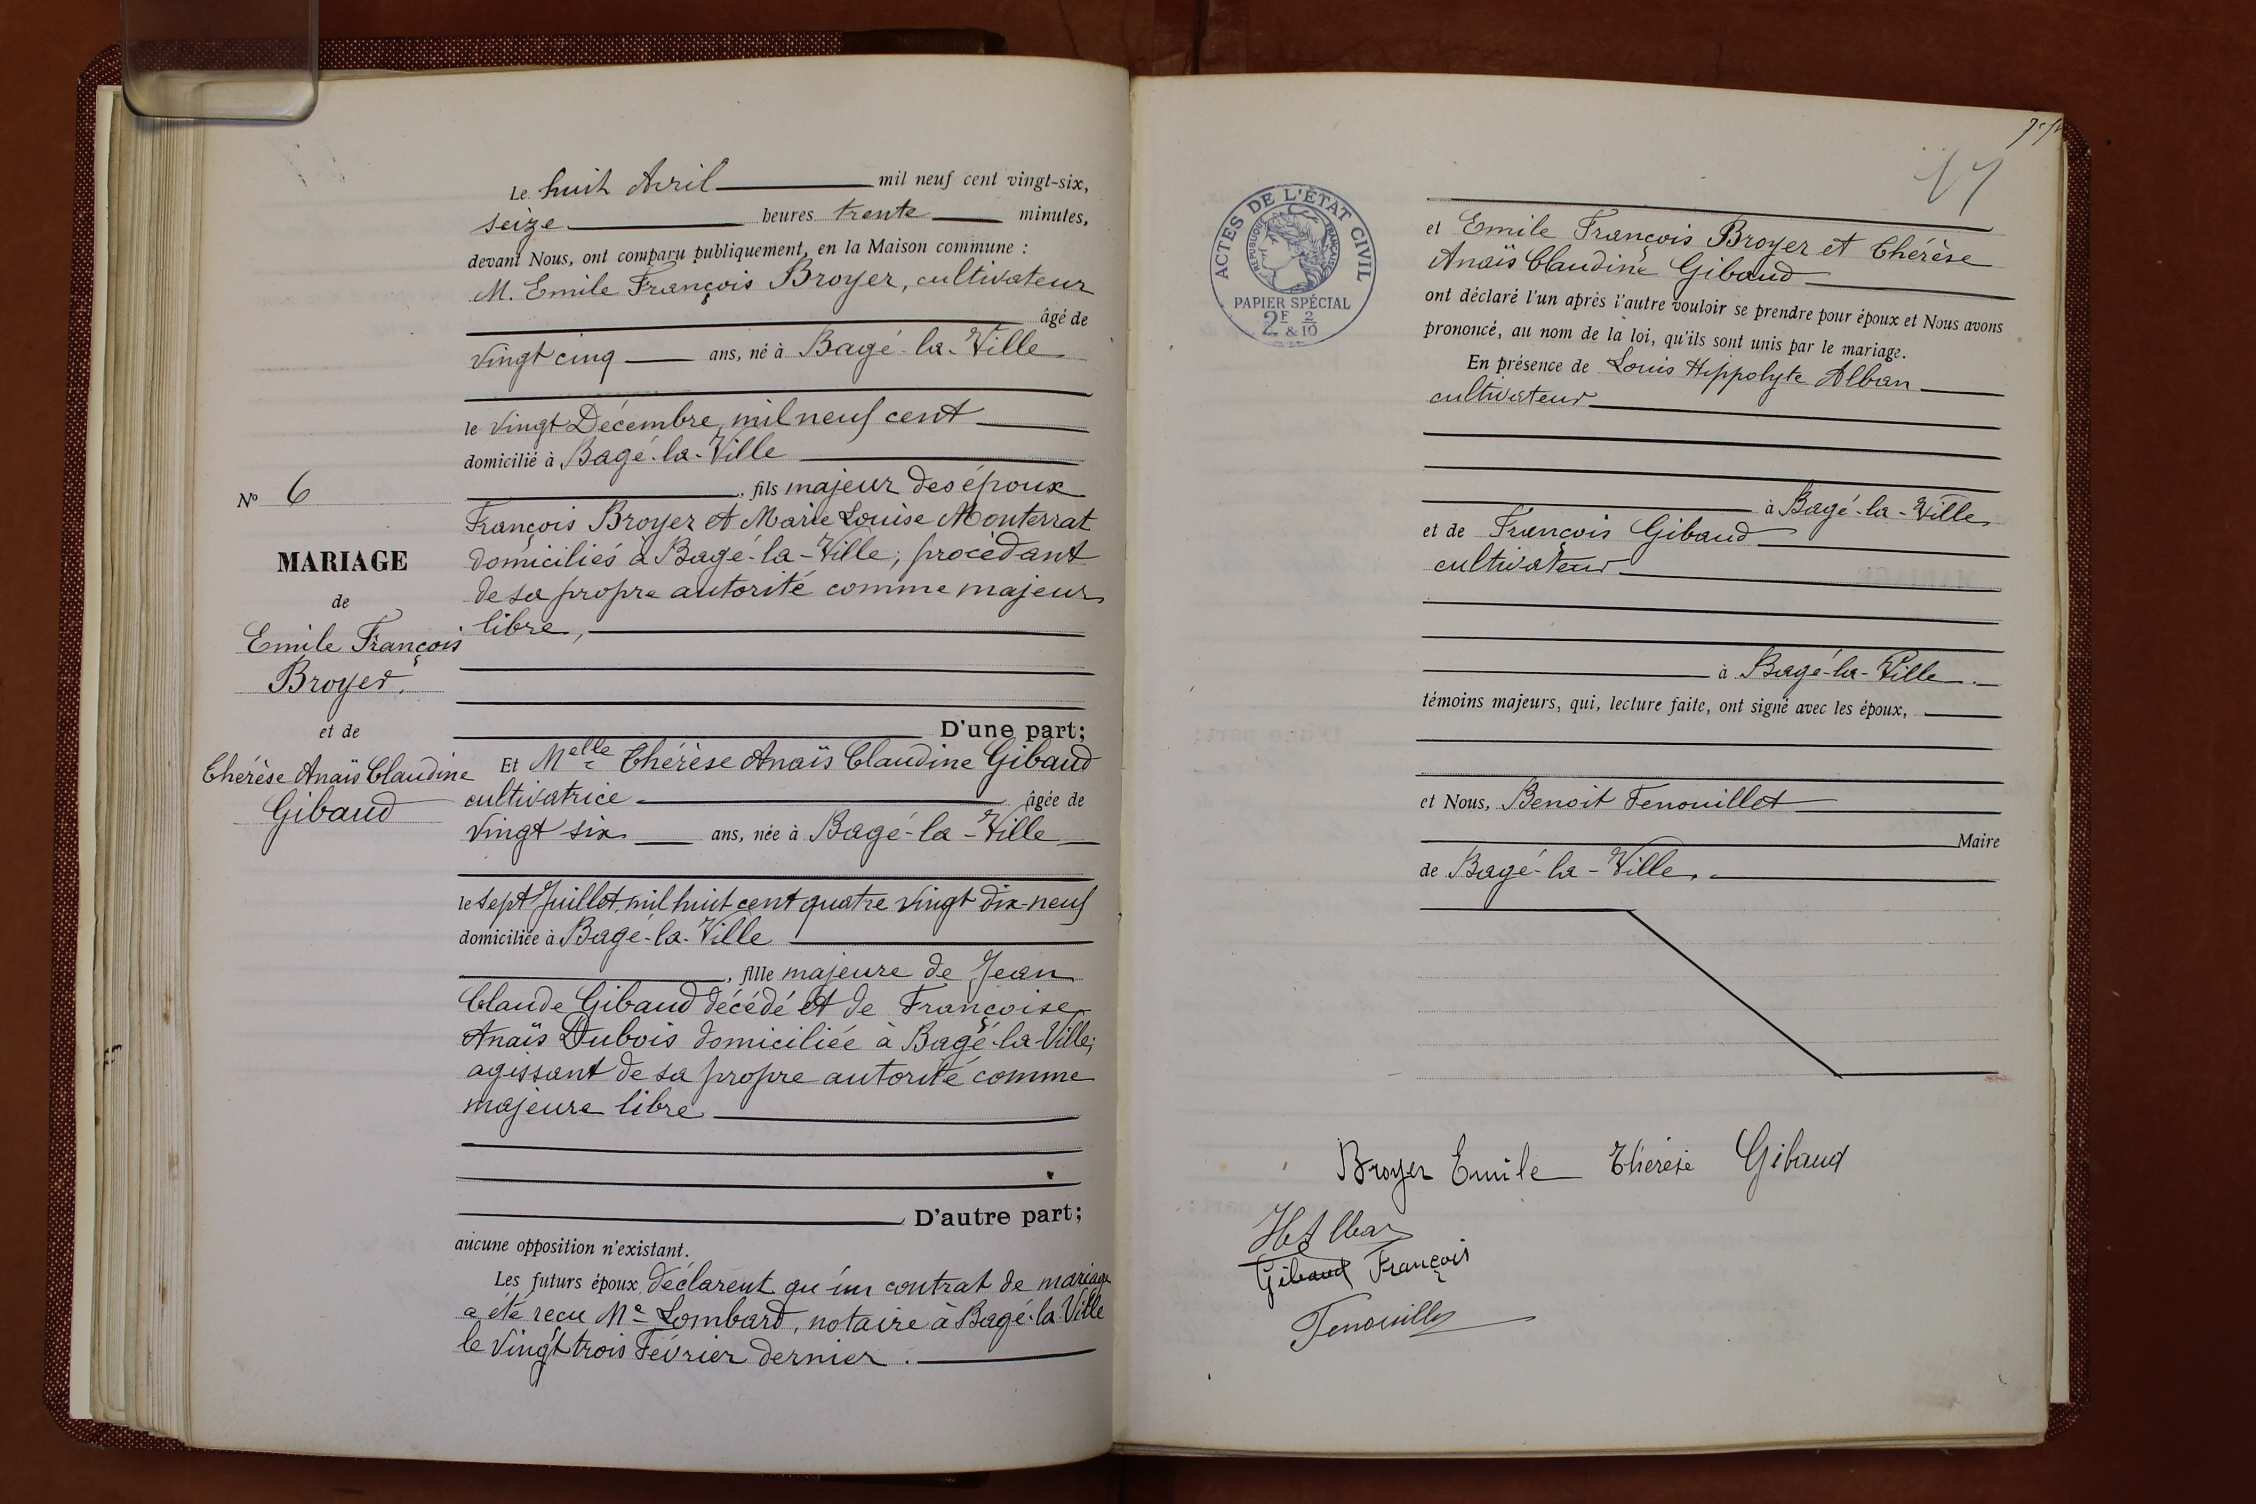 Le huit Avril mil neuf cent vingt-six,
seize heures trente minutes,
devant Nous, ont comparu publiquement, en la Maison commune :
M. Emile François Broyer, cultivateur
âgé de
vingt cinq ans, né à Bagé-la-Ville
le vingt Décembre, mil neuf cent
domicilié à Bagé-la-Ville
, fils majeur des époux
François Broyer et Marie Louise Monterrat
domiciliés à Bagé-la-Ville, procédant
de sa propre autorité comme majeur
libre,
D'une part;
Et Melle Thérèse Anaïs Claudine Gibaud
cultivatrice âgée de
vingt six ans, née à Bagé-la-Ville
le sept Juillet, mil huit cent quatre vingt dix-neuf
domiciliée à Bagé-la-Ville
, fille majeure de Jean
Claude Gibaud décédé et de Françoise
Anaïs Dubois domiciliée à Bagé-la-Ville;
agissant de sa propre autorité comme
majeure libre
D'autre part;
aucune opposition n'existant.
Les futurs époux déclarent qu'un contrat de mariage
a été reçu Me Lombard, notaire à Bagé-la-Ville
le vingt trois Février dernier.
No 6
MARIAGE
de
Emile François
Broyer.
et de
Thérèse Anaïs Claudine
Gibaud
17
ACTES DE L'ÉTAT CIVIL
RÉPUBLIQUE FRANÇAISE
PAPIER SPÉCIAL
2F & 2/10
et Emile François Broyer et Thérèse
Anaïs Claudine Gibaud
ont déclaré l'un après l'autre vouloir se prendre pour époux et Nous avons
prononcé, au nom de la loi, qu'ils sont unis par le mariage.
En présence de Louis Hippolyte Alban
cultivateur
à Bagé-la-Ville
et de François Gibaud
cultivateur
à Bagé-la-Ville.
témoins majeurs, qui, lecture faite, ont signé avec les époux,
et Nous, Benoit Fenouillet
Maire
de Bagé-la-Ville.
Broyer Emile Thérèse Gibaud
Gibaud François